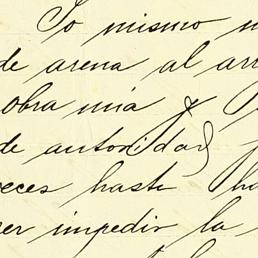 Yo mismo
de arena al
obra mia y
de autoridad
veces hasta
impedir la